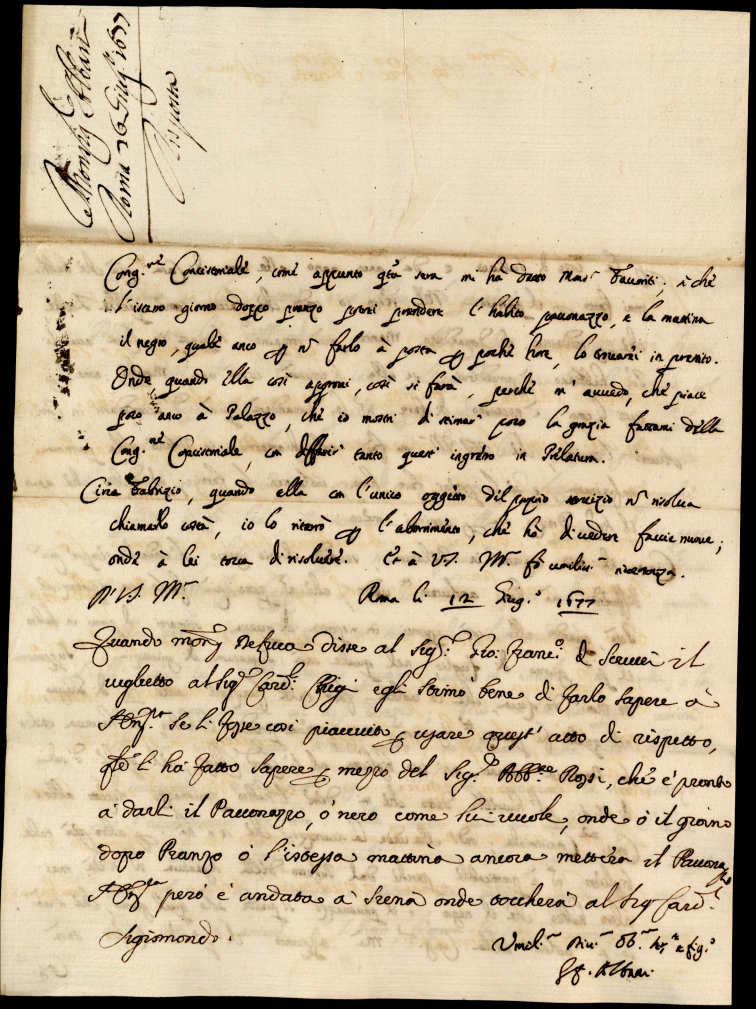 Monsig.r Albani
Roma 26 Giug.o 1677
Risposta
Cong.ne Concistoriale, come appunto q.ta sera mi ha detto Mons.r Favoriti; siche
l'istesso giorno doppo pranzo potrei prendere l'habito pavonazzo, e la mattina
il negro, quale anco p n farlo à posta p poche hore, lo trovarei in prestito.
Onde quando ella così approvi, così si farà, perche m'avvedo, che piace
poco anco à Palazzo, che io mostri di stimar poco la grazia fattami della
Cong.ne Concistoriale, con differir tanto questo ingresso in Prelatura.
Circa Fabrizio, quando ella con l'unico oggetto del proprio servizio n risolva
chiamarlo costà, io lo riterrò p l'aborrimento, che hò di vedere faccie nuove;
onde à lei tocca di risolvere. Et à V.S. Ill.ma fò umiliss.a riverenza.
Di V.S. Ill.ma Roma li 12 Giug.o 1677
Quando mons.r disse al Sig.r Gio: Franc.o di scrivere il
viglietto al Sig.r Card.l Chigi egli stimò bene di farlo sapere à
se li fosse così piacciuto usare quest'atto di rispetto,
li hà fatto sapere p mezzo del Sig.r Abb.te Rossi, che è pronto
à darli il Pavonazzo, ò nero come lui vuole, onde ò il giorno
dopo Pranzo ò l'istessa mattina ancora metterà il Pavonazzo
però è andata à Siena onde toccherà al Sig.r Card.l
Sigismondo.
Umil.mo Div.mo Obb.mo e fig.o
G.F. Albani